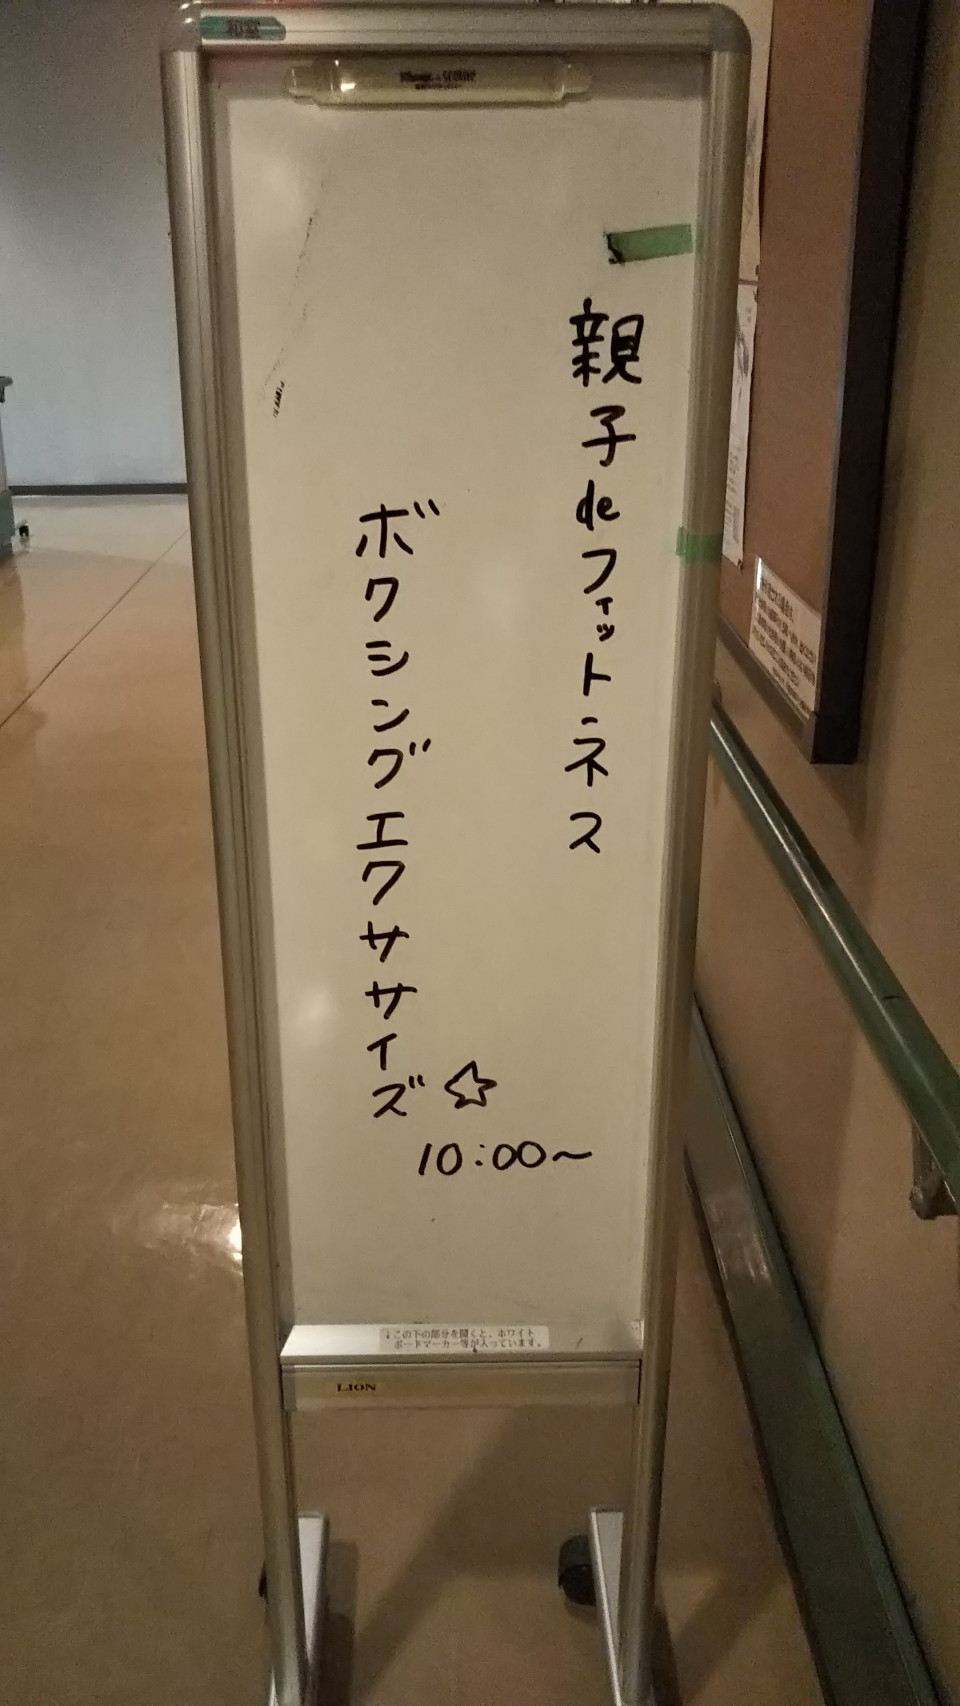 和室
親子deフィットネス
ボクシングエクササイズ☆
10:00～
↓この下の部分を開くと、ホワイト
ボードマーカー等が入っています。
LION